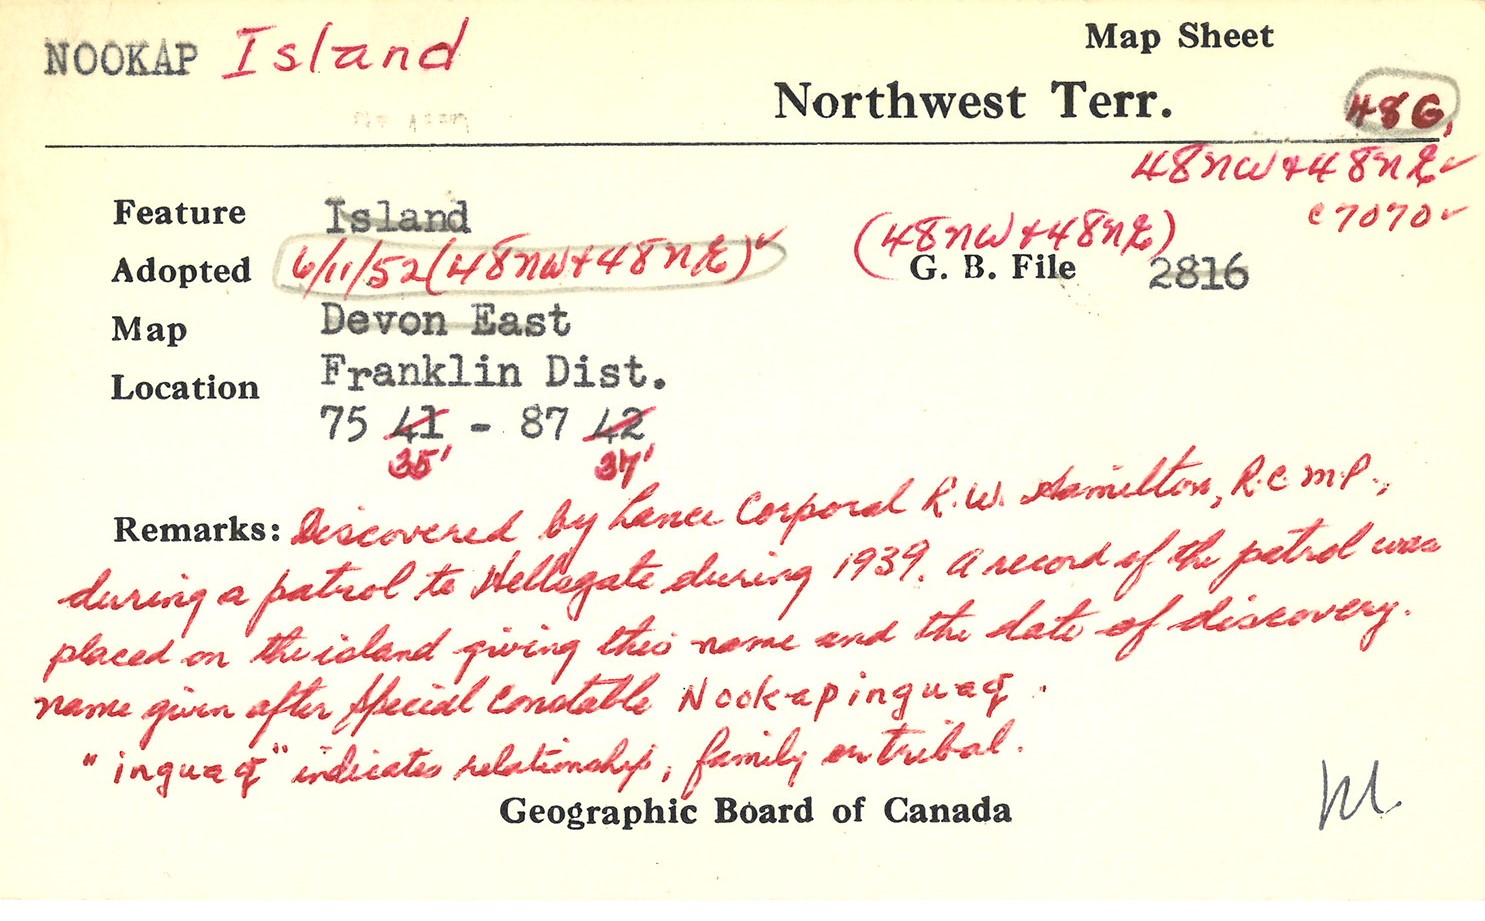 NOOKAP Island
Map Sheet
Northwest Terr.
48G,
48NW + 48NE ✓
C7070 ✓
Feature Island
(48NW + 48NE)
Adopted 6/11/52 (48NW + 48NE) ✓
G. B. File 2816
Map Devon East
Location Franklin Dist.
75 41 - 87 42
35' 37'
Remarks: Discovered by Lance Corporal R.W. Hamilton, R.C.M.P.,
during a patrol to Hellsgate during 1939. A record of the patrol was
placed on the island giving this name and the date of discovery.
name given after Special Constable Nookapinguaq.
"inguaq" indicates relationship, family or tribal.
Geographic Board of Canada